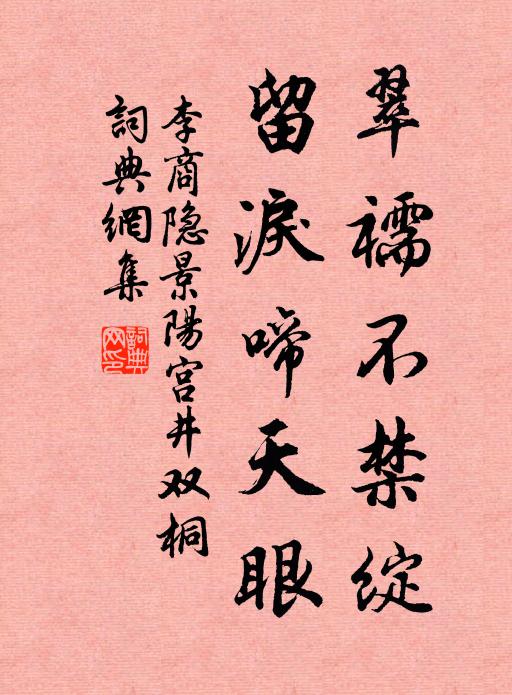 翠襦不禁綻
留淚啼天眼
李商隐景陽宫井双桐
詞典網集
詞典网印